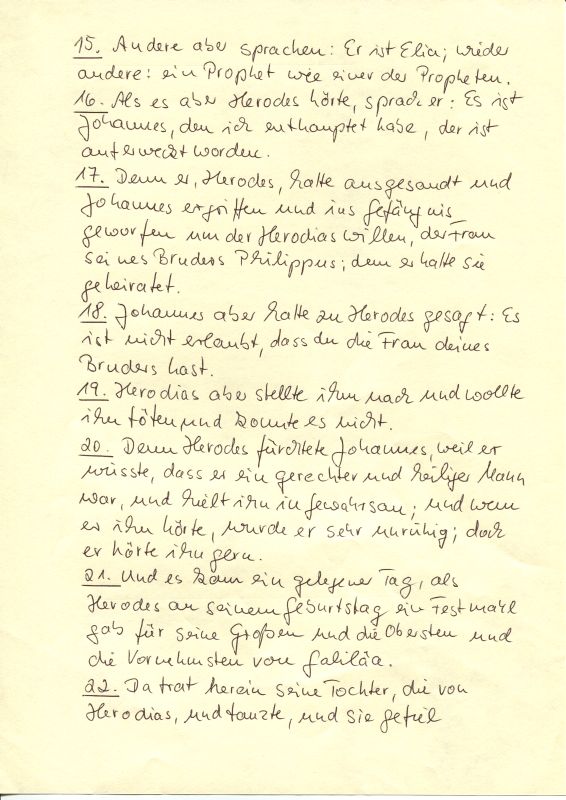 15. Andere aber sprachen: Er ist Elia; wieder
andere: ein Prophet wie einer der Propheten.
16. Als es aber Herodes hörte, sprach er: Es ist
Johannes, den ich enthauptet habe, der ist
auferweckt worden.
17. Denn er, Herodes, hatte ausgesandt und
Johannes ergriffen und ins Gefängnis
geworfen um der Herodias willen, der Frau
seines Bruders Philippus; denn er hatte sie
geheiratet.
18. Johannes aber hatte zu Herodes gesagt: Es
ist nicht erlaubt, dass du die Frau deines
Bruders hast.
19. Herodias aber stellte ihm nach und wollte
ihn töten und konnte es nicht.
20. Denn Herodes fürchtete Johannes, weil er
wusste, dass er ein gerechter und heiliger Mann
war, und hielt ihn in Gewahrsam; und wenn
er ihn hörte, wurde er sehr unruhig; doch
er hörte ihn gern.
21. Und es kam ein gelegener Tag, als
Herodes an seinem Geburtstag ein Festmahl
gab für seine Großen und die Obersten und
die Vornehmsten von Galiläa.
22. Da trat herein seine Tochter, die von
Herodias, und tanzte, und sie gefiel